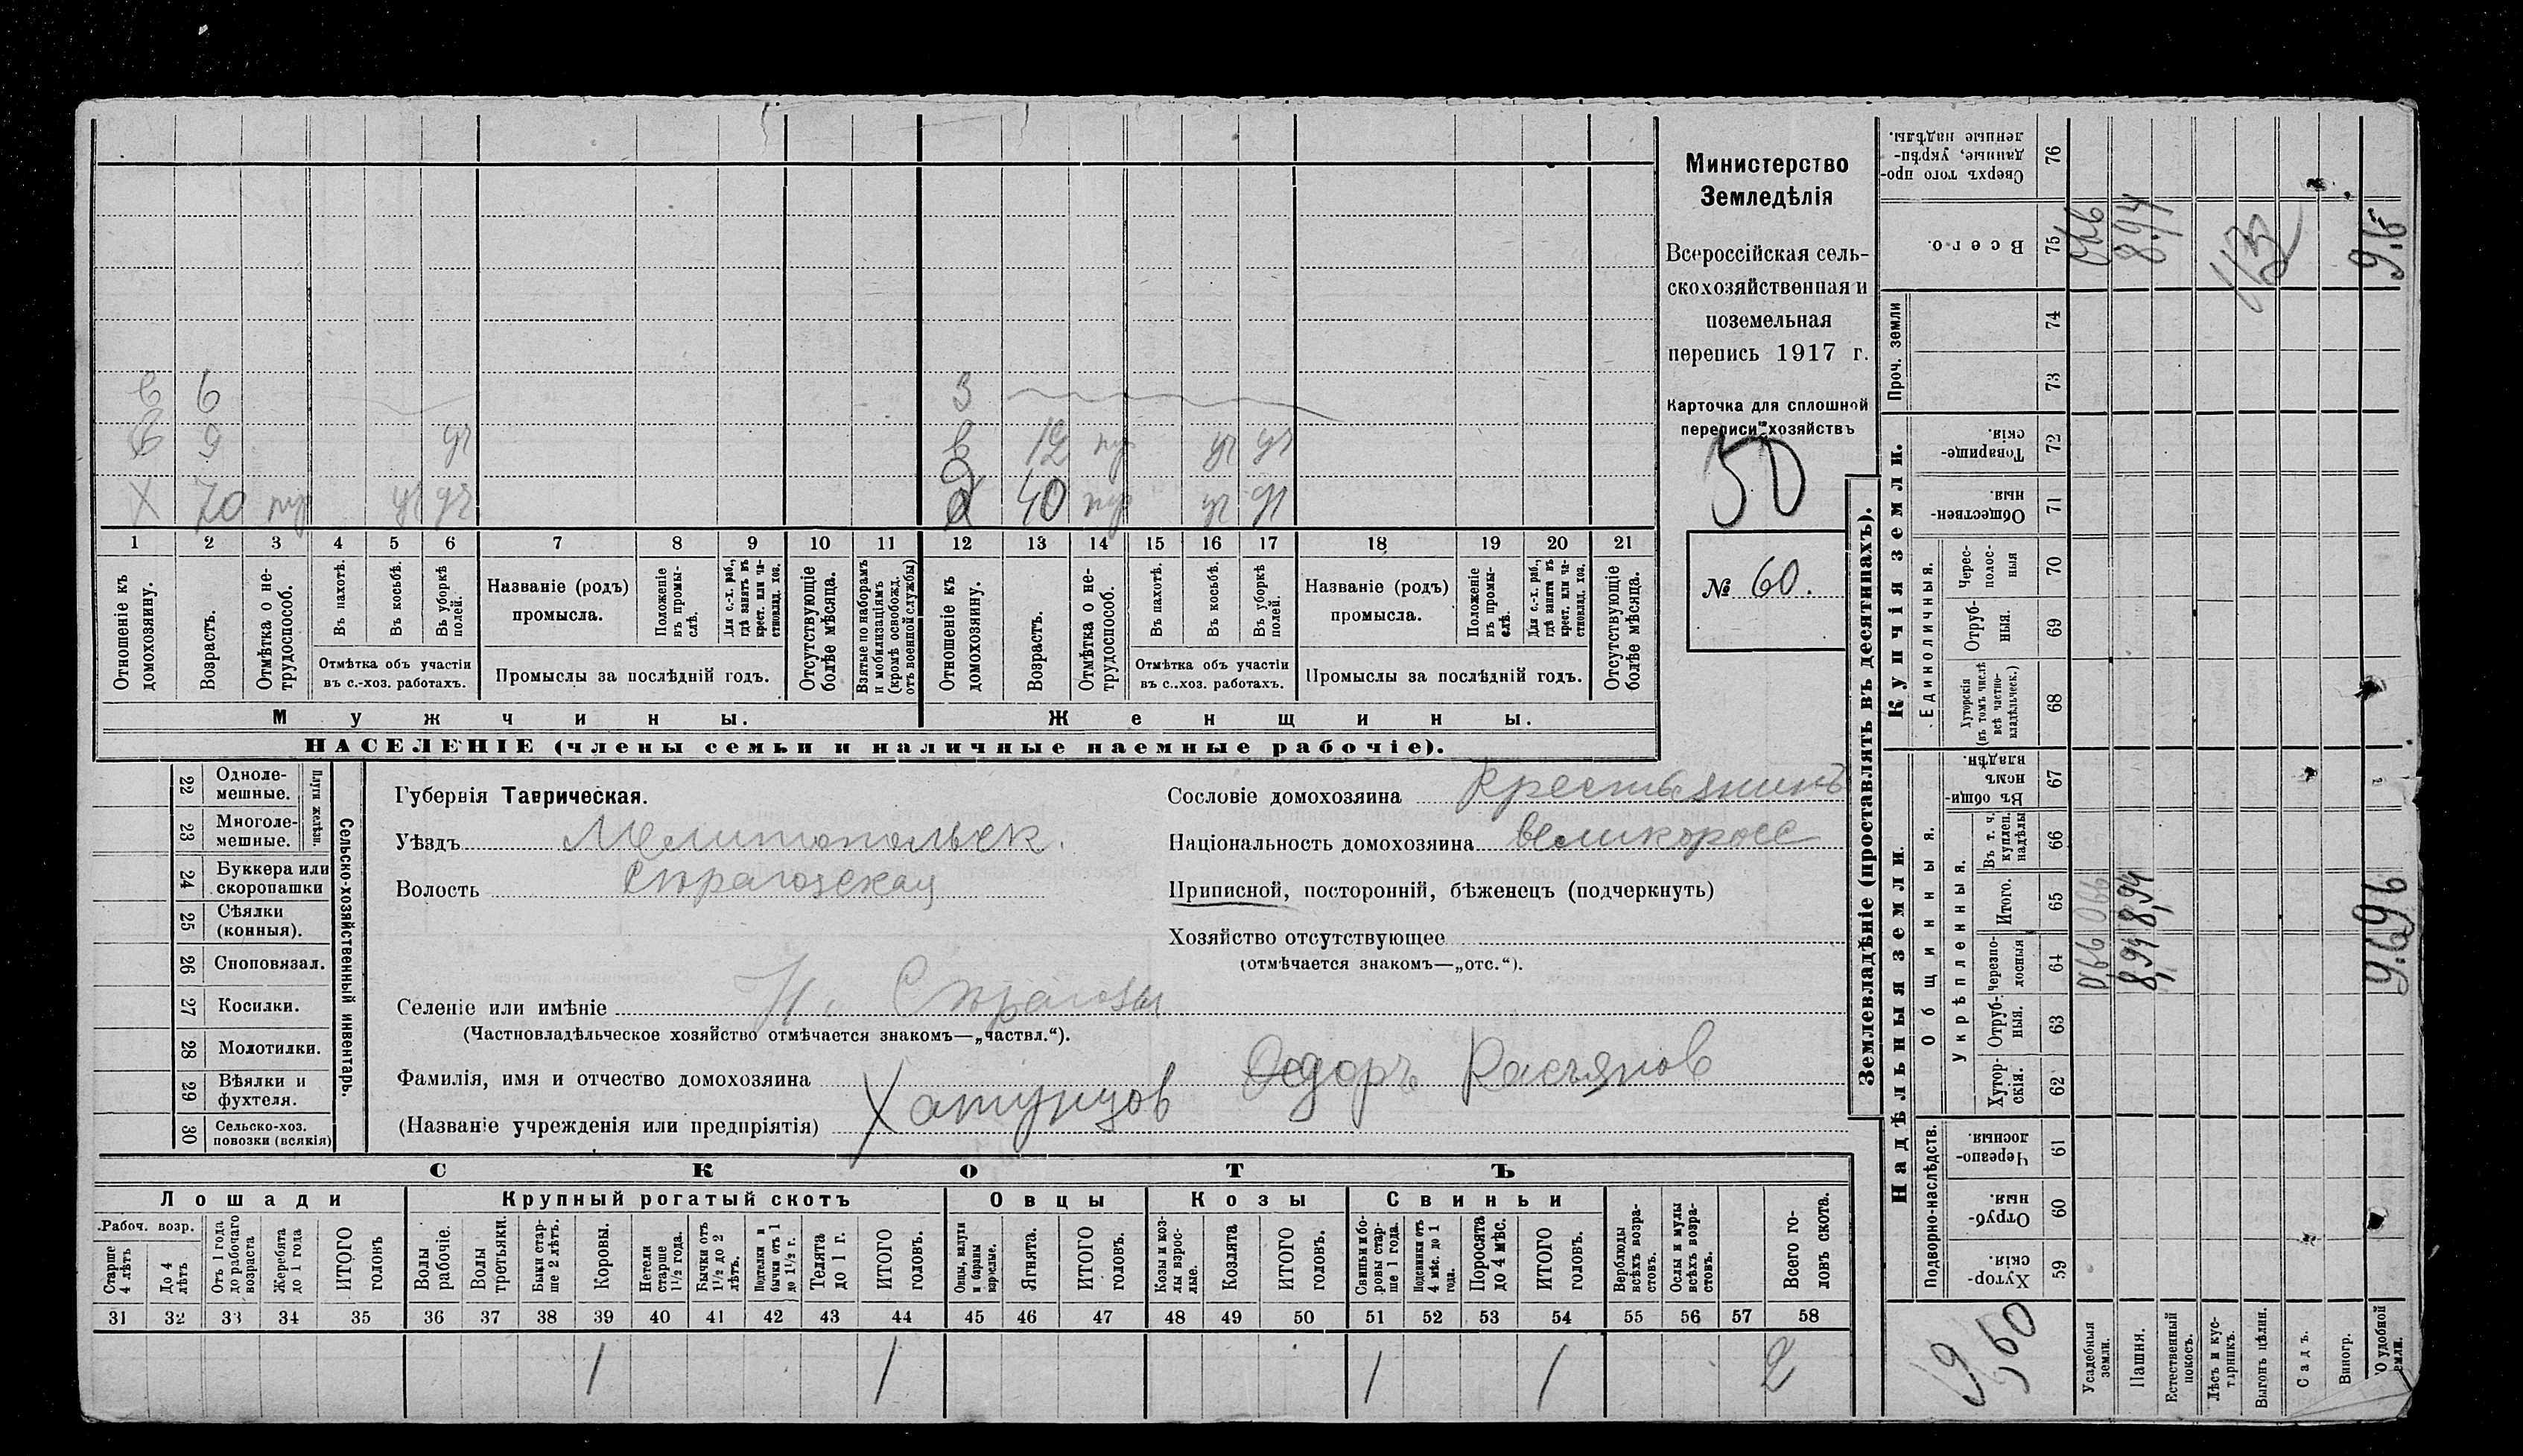 Министерство
Земледѣлія
Всероссійская сель-
скохозяйственная и
поземельная
перепись 1917 г.
Карточка для сплошной
переписи хозяйствъ
50
№ 60.
в 6 3
в 9 уч в 12 пр уч уч
X 70 пр уч уч 40 пр уч уч
1 2 3 4 5 6 7 8 9 10 11 12 13 14 15 16 17 18 19 20 21
Отношеніе къ домохозяину.
Возрастъ.
Отмѣтка о не-трудоспособ.
Въ пахотѣ.
Въ косьбѣ.
Въ уборкѣ полей.
Отмѣтка объ участіи
въ с.-хоз. работахъ.
Названіе (родъ)
промысла.
Положеніе въ промы-слѣ.
Для с.-х. раб., гдѣ занятъ въ крест. или ча-стновлад. хоз.
Промыслы за послѣдній годъ.
Отсутствующіе болѣе мѣсяца.
Взятые по наборамъ и мобилизаціямъ (кромѣ освобожд. отъ военной службы)
Отношеніе къ домохозяину.
Возрастъ.
Отмѣтка о не-трудоспособ.
Въ пахотѣ.
Въ косьбѣ.
Въ уборкѣ полей.
Отмѣтка объ участіи
въ с..хоз. работахъ.
Названіе (родъ)
промысла.
Положеніе въ промы-слѣ.
Для с.-х. раб., гдѣ занята въ крест. или ча-стновлад. хоз.
Промыслы за послѣдній годъ.
Отсутствующіе болѣе мѣсяца.
Мужчины. Женщины.
НАСЕЛЕНІЕ (члены семьи и наличные наемные рабочіе).
22 Одноле-мешные.
23 Многоле-мешные.
Плуги желѣзн.
24 Буккера или скоропашки
25 Сѣялки (конныя).
26 Сноповязал.
27 Косилки.
28 Молотилки.
29 Вѣялки и фухтеля.
30 Сельско-хоз. повозки (всякія)
Сельско-хозяйственный инвентарь.
Губернія Таврическая.
Уѣздъ Мелитопольск.
Волость Строгозская
Сословіе домохозяина крестьянинъ
Національность домохозяина великоросс
Приписной, посторонній, бѣженецъ (подчеркнуть)
Хозяйство отсутствующее
(отмѣчается знакомъ—„отс.“).
Селеніе или имѣніе Н.
(Частновладѣльческое хозяйство отмѣчается знакомъ—„частвл.“).
Фамилія, имя и отчество домохозяина Хатунцов Федоръ Касьянов
(Названіе учрежденія или предпріятія)
СКОТЪ
Лошади Крупный рогатый скотъ Овцы Козы Свиньи
Рабоч. возр.
Старше 4 лѣтъ
До 4 лѣтъ
Отъ 1 года до рабочаго возраста
Жеребята до 1 года
ИТОГО головъ
Волы рабочіе.
Волы третьяки.
Быки стар-ше 2 лѣтъ.
Коровы.
Нетели старше 1½ года.
Бычки отъ 1½ до 2 лѣтъ.
Подтелки и бычки отъ 1 до 1½ г.
Телята до 1 г.
ИТОГО головъ.
Овцы, валухи и бараны взрослые.
Ягнята.
ИТОГО головъ.
Козы и коз-лы взрос-лые.
Козлята
ИТОГО головъ.
Свиньи и бо-ровы стар-ше 1 года.
Подсвинки отъ 4 мѣс. до 1 года.
Поросята до 4 мѣс.
ИТОГО головъ.
Верблюды всѣхъ возра-стовъ.
Ослы и мулы всѣхъ возра-стовъ.
Всего го-ловъ скота.
31 32 33 34 35 36 37 38 39 40 41 42 43 44 45 46 47 48 49 50 51 52 53 54 55 56 57 58
1 1 1 1 2
Землевладѣніе (проставлять въ десятинахъ).
Надѣльныя земли.
Купчія земли.
Проч. земли
Подворно-наслѣдств.
Общинныя.
Укрѣпленныя.
Единоличныя.
Хутор-скія. 59
Отруб-ныя. 60
Черезпо-лосныя. 61
Хутор-скія. 62
Отруб-ныя. 63
Черезпо-лосныя 64
Итого. 65
Въ т. ч. куплен. надѣлы 66
Въ общин-номъ владѣн. 67
Хуторскія (въ томъ числѣ всѣ частно-владѣльческ.) 68
Отруб-ныя. 69
Черес-полос-ныя 70
Обществен-ныя. 71
Товарище-скія. 72
73
74
Всего. 75
Сверхъ того про-данные, укрѣп-ленные надѣлы. 76
9,60
Усадебныя земли. 066 066
Пашня. 8,94 8,94 8,94
Естественный покосъ.
Лѣсъ и кус-тарникъ.
Выгонъ цѣлин.
Садъ.
Виногр.
удобной земли. 9.6 9.6